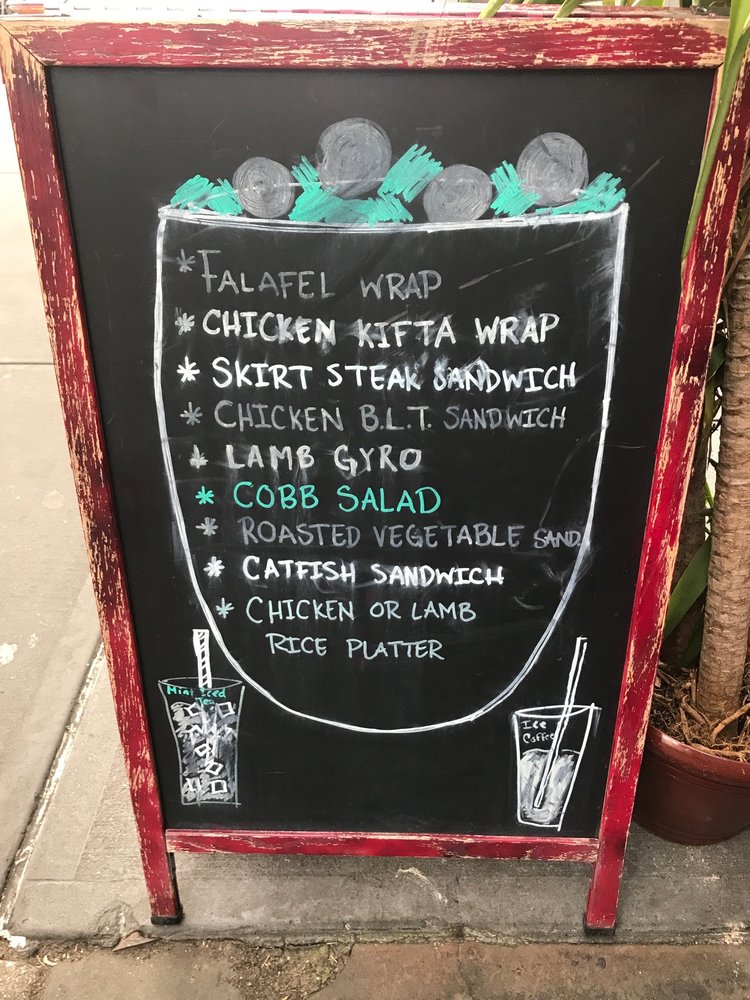 * FALAFEL WRAP
* CHICKEN KIFTA WRAP
* SKIRT STEAK SANDWICH
* CHICKEN B.L.T. SANDWICH
* LAMB GYRO
* COBB SALAD
* ROASTED VEGETABLE SAND.
* CATFISH SANDWICH
* CHICKEN OR LAMB
RICE PLATTER
Mint Iced
Tea
Ice
Coffee